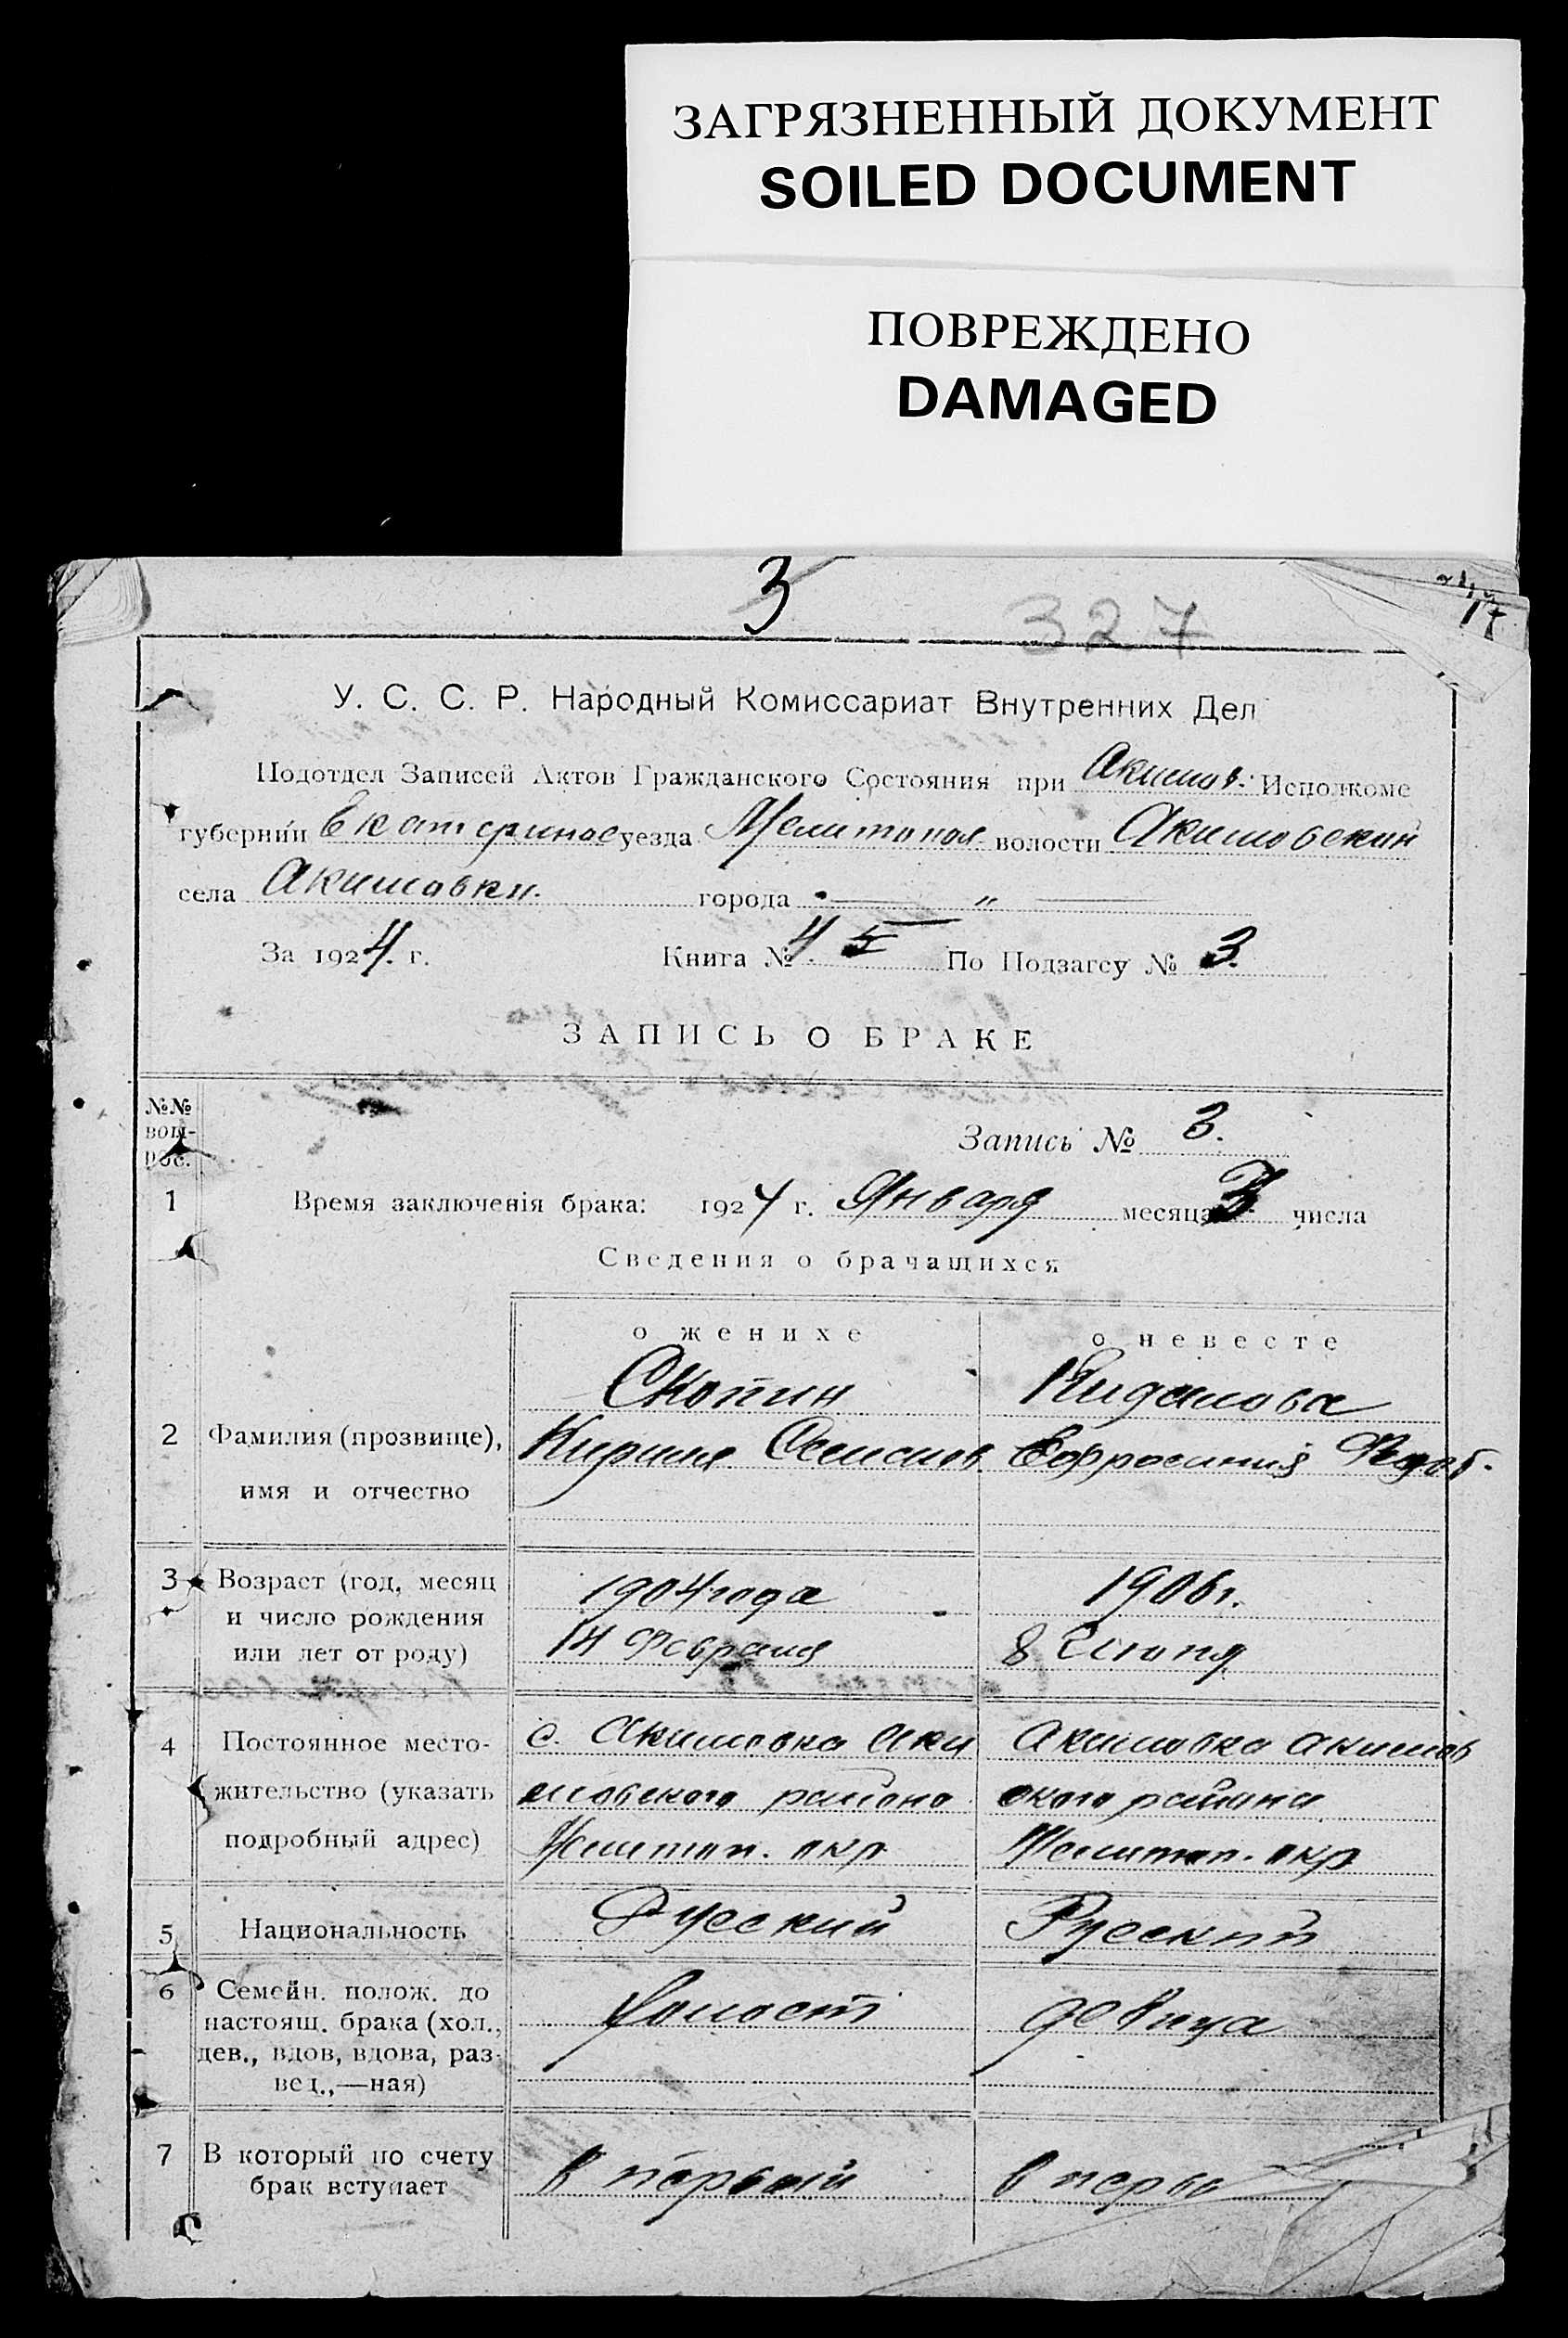 ЗАГРЯЗНЕННЫЙ ДОКУМЕНТ
SOILED DOCUMENT
ПОВРЕЖДЕНО
DAMAGED
3
327
У. С. С. Р. Народный Комиссариат Внутренних Дел
Подотдел Записей Актов Гражданского Состояния при Акимов. Исполкоме
губернии Екатеринос уезда Мелитопол волости Акимовский
села Акимовки. города — „ —
За 1924 г. Книга № 4 По Подзагсу № 3.
ЗАПИСЬ О БРАКЕ
№№ вопрос.
Запись № 3.
1 Время заключенія брака: 1924 г. Января месяца 3 числа
Сведения о брачащихся
о женихе о невесте
Скопин
2 Фамилия (прозвище),
имя и отчество
Кирилл
Ефросиния
3 Возраст (год, месяц 1904 года 1906 г.
и число рождения
или лет от роду) 14 Февраля 8 Июня
4 Постоянное место- с. Акимовка Аки Акимовка Акимов
жительство (указать мовского района ского района
подробный адрес) Мелитоп. окр Мелитоп. окр
5 Национальность Русский Русский
6 Семейн. полож. до
настоящ. брака (хол., холост девица
дев., вдов, вдова, раз-
вед.,—ная)
7 В который по счету в первый в первы
брак вступает